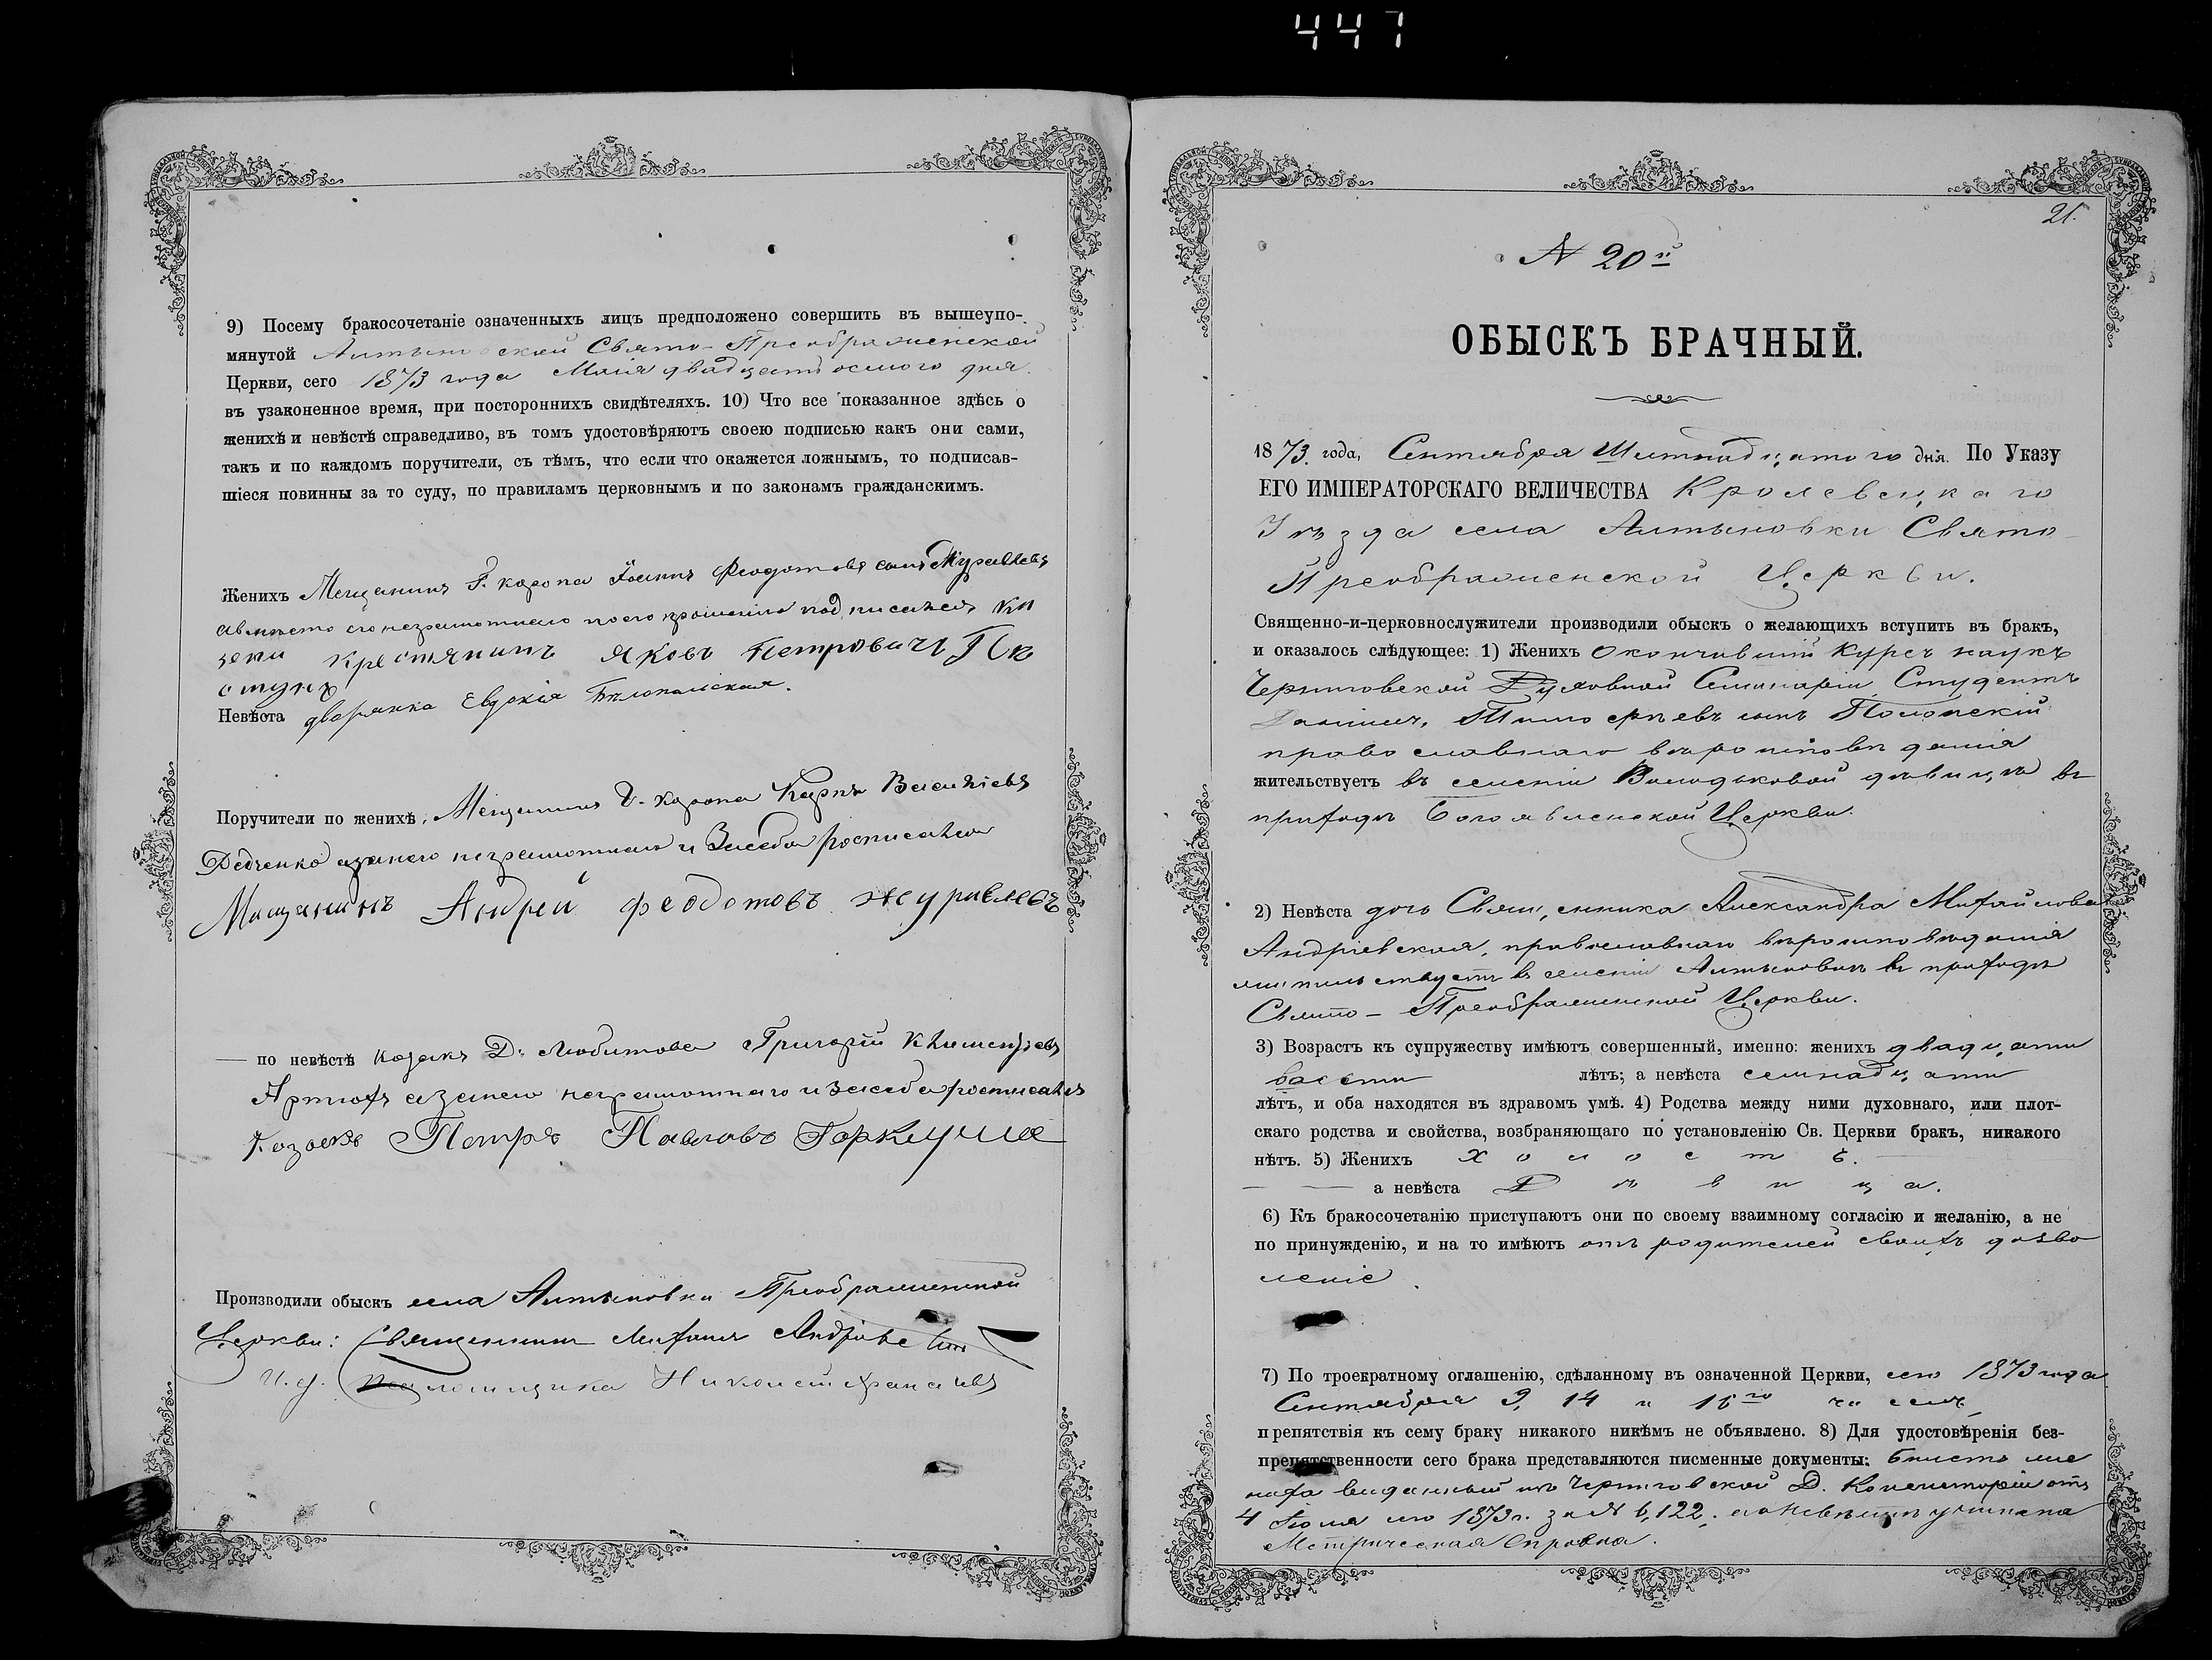 447
9) Посему бракосочетаніе означенныхъ лицъ предположено совершить въ вышеупо-
мянутой Алтыновской Свято-Преображенской
Церкви, сего 1873 года Маія двадцать осмого дня.
въ узаконенное время, при постороннихъ свидѣтеляхъ. 10) Что все показанное здѣсь о
женихѣ и невѣстѣ справедливо, въ томъ удостовѣряютъ своею подписью какъ они сами,
такъ и по каждомъ поручители, съ тѣмъ, что если что окажется ложнымъ, то подписав-
шіеся повинны за то суду, по правиламъ церковнымъ и по законамъ гражданскимъ.
Женихъ Мещанинъ Г. Коропа Іоаннъ Феодотовъ сынъ Журавлевъ
а вместо его неграмотнаго по его прошенію подписался
Крестянинъ Яковъ Петровичъ
Невѣста дворянка Евдокія Бѣлопольская.
Поручители по женихѣ, Мещанинъ Г. Коропа Карпъ Василіевъ
Дедченко а за него неграмотнаго и За себя росписался
Мищанинъ Андрей Феодотовъ Журавлевъ
— по невѣстѣ Козакъ Д. Любитова Григорій Климентіевъ
Артюхъ а за него неграмотнаго и за себя росписался
Козакъ Петръ Павловъ Горкуша
Производили обыскъ села Алтыновки Преображенской
Церкви: Священникъ Михаилъ Андріевскій
И. д. Псаломщика
21.
N 20й
ОБЫСКЪ БРАЧНЫЙ.
1873. года, Сентября Шестнадцатого дня. По Указу
ЕГО ИМПЕРАТОРСКАГО ВЕЛИЧЕСТВА Кролевецкаго
Уѣзда села Алтыновки Свято-
Преображенской Церкви.
Священно-и-церковнослужители производили обыскъ о желающихъ вступить въ бракъ,
и оказалось слѣдующее: 1) Женихъ Окончившій Курсъ наукъ
Черниговской Духовной Семинаріи Студентъ
Даніилъ, Тимофѣевъ сынъ Полонскій
православнаго вѣроисповѣданія
жительствуетъ въ селеніи Володьковой дѣвицѣ въ
приходѣ Богоявленской Церкви.
2) Невѣста дочь Священника Александра Михайлова
Андріевская, православнаго вѣроисповѣданія
жительствуетъ въ селеніи Алтыновкѣ въ приходѣ
Свято-Преображенской Церкви.
3) Возрастъ къ супружеству имѣютъ совершенный, именно: женихъ двадцати
лѣтъ; а невѣста семнадцати
лѣтъ, и оба находятся въ здравомъ умѣ. 4) Родства между ними духовнаго, или плот-
скаго родства и свойства, возбраняющаго по установленію Св. Церкви бракъ, никакого
нѣтъ. 5) Женихъ Холостъ.
а невѣста Дѣвица.
6) Къ бракосочетанію приступаютъ они по своему взаимному согласію и желанію, а не
по принужденію, и на то имѣютъ отъ родителей своихъ дозво
леніе
7) По троекратному оглашенію, сдѣланному въ означенной Церкви, сего 1873 года
Сентября 9, 14 и 16го чиселъ
препятствія къ сему браку никакого никѣмъ не объявлено. 8) Для удостовѣренія без-
препятственности сего брака представляются писменные документы: билетъ же
ниха выданный изъ Черниговской Д. Консисторіи отъ
4 Іюля сего 1873 г. за N 6,122. а о невѣстѣ учинена
Метрическая Справка.